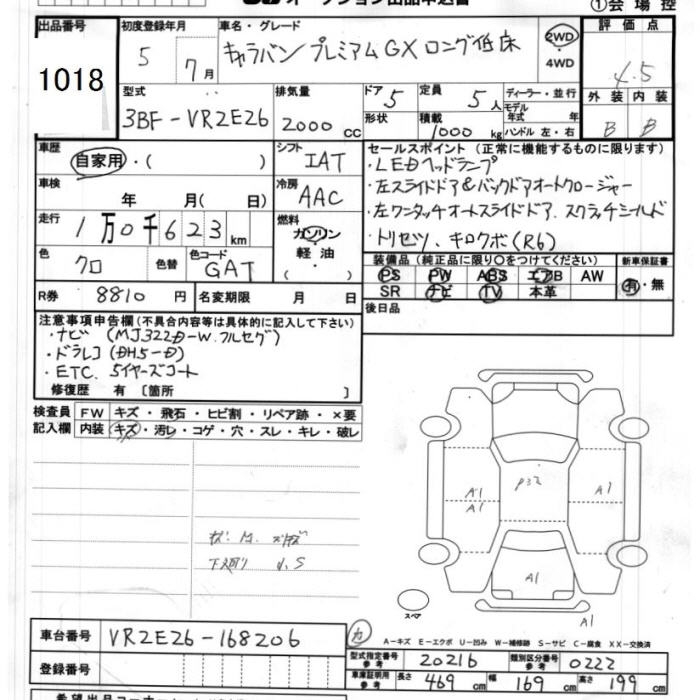 オークション出品申込書
①会場控
出品番号
1018
初度登録年月
5
7月
車名・グレード
キャラバン プレミアムGX ロング低床
2WD
4WD
評価点
4.5
外装 内装
B B
型式
3BF-VR2E26
排気量
2000cc
ドア 5
形状
定員
5人
積載
1000kg
ディーラー・並行
モデル
年式 年
ハンドル 左・右
車歴
自家用・( )
シフト
IAT
車検
年 月( 日)
冷房
AAC
走行
1万0千623km
燃料
ガソリン
軽油
( ・ )
色
クロ
色替
色コード
GAT
R券 8810円
名変期限 月 日
セールスポイント(正常に機能するものに限ります)
・LEDヘッドランプ
・左スライドドア&バックドアオートクロージャー
・左ワンタッチオートスライドドア、スクラッチシールド
・トリセツ、キロクボ(R6)
装備品(純正品に限り○をつけてください)
新車保証書
PS PW ABS エアB AW
SR ナビ TV 本革
有・無
後日品
注意事項申告欄(不具合内容等は具体的に記入して下さい)
・ナビ (MJ322D-W.フルセグ)
・ドラレコ (DH5-D)
・ETC. 5イヤーズコート
修復歴 有〔箇所 〕
検査員
記入欄
FW キズ・飛石・ヒビ割・リペア跡・×要
内装 キズ・汚レ・コゲ・穴・スレ・キレ・破レ
下廻り
A1
A1
P32
A1
A1
A1
スペア
車台番号
VR2E26-168206
登録番号
A-キズ E-エクボ U-凹み W-補修跡 S-サビ C-腐食 XX-交換済
型式指定番号
参考
20216
類別区分番号
参考
0222
車庫証明用
参考
長さ 469cm
幅 169cm
高さ 199cm